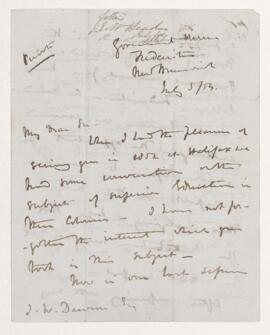 Private
Government House
Fredericton
New Brunswick
July 5/54
My dear Sir
When I had the pleasure of
seeing you in 1852 at Halifax we
had some conversation on the
subject of superior Education in
these Colonies — I have not for-
gotten the interest which you
took in this subject —
Now in our last session
J. W. Dawson Esq